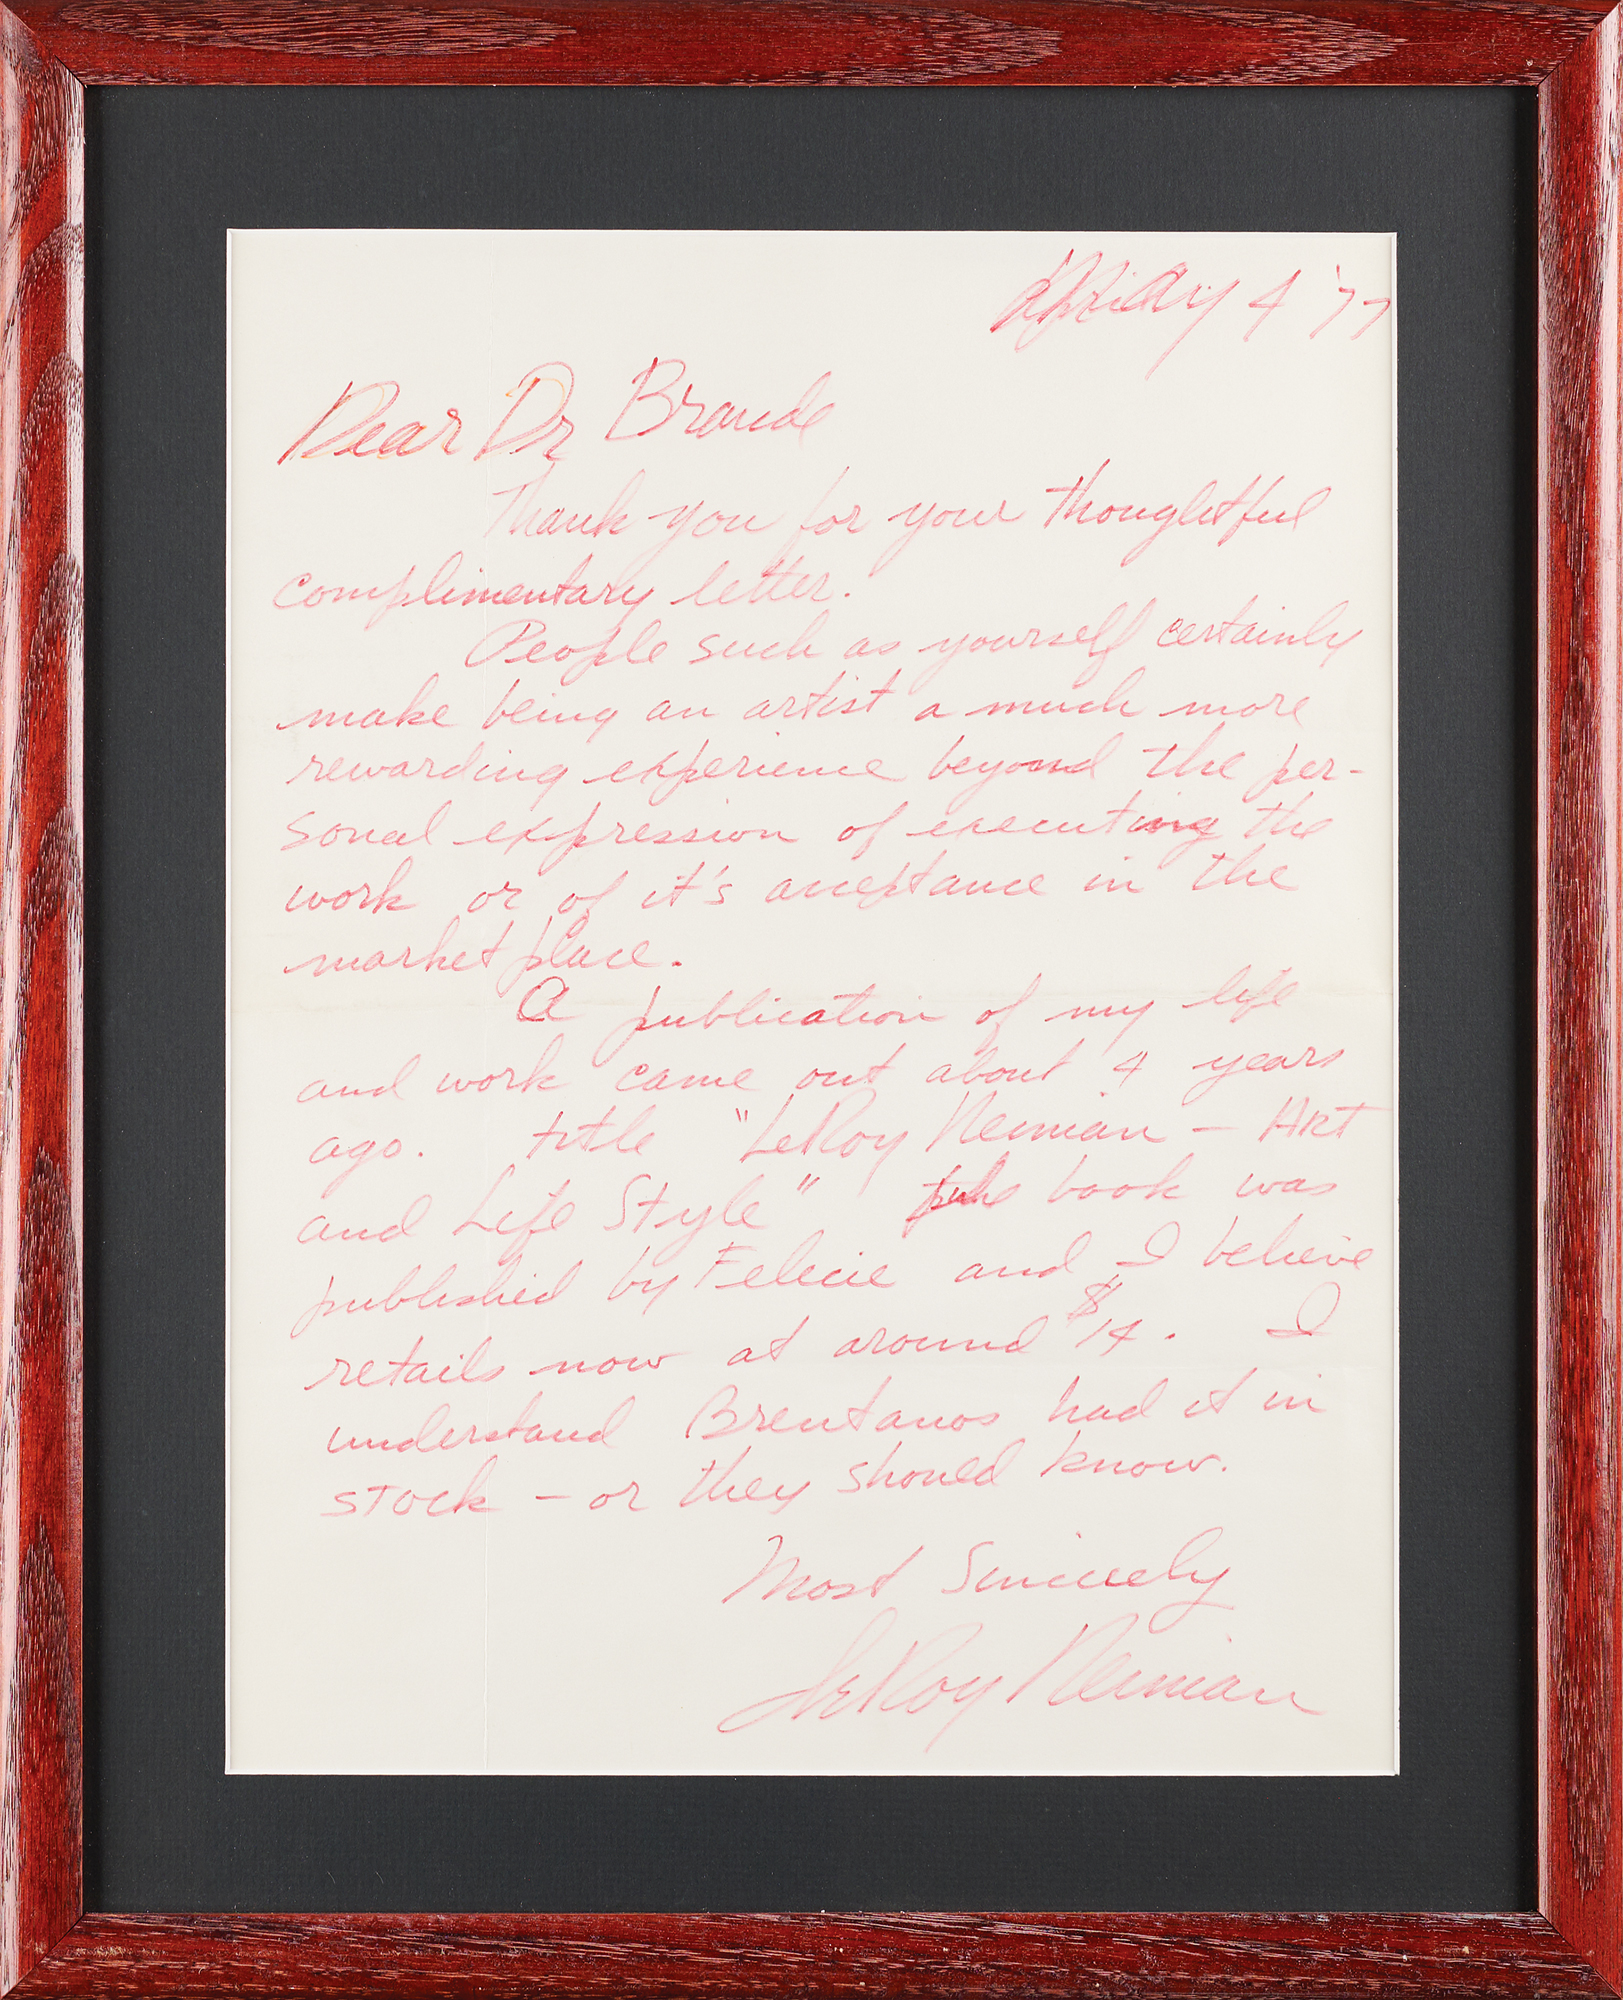 May 4 '77
Dear Dr Braude
Thank you for your thoughtful
complimentary letter.
People such as yourself certainly
make being an artist a much more
rewarding experience beyond the per-
sonal expression of executing the
work or of it's acceptance in the
market place.
A publication of my life
and work came out about 4 years
ago. title "LeRoy Neiman – ART
and Life Style" book was
published by Felicie and I believe
retails now at around $14. I
understand Brentanos had it in
stock – or they should know.
Most Sincerely
LeRoy Neiman